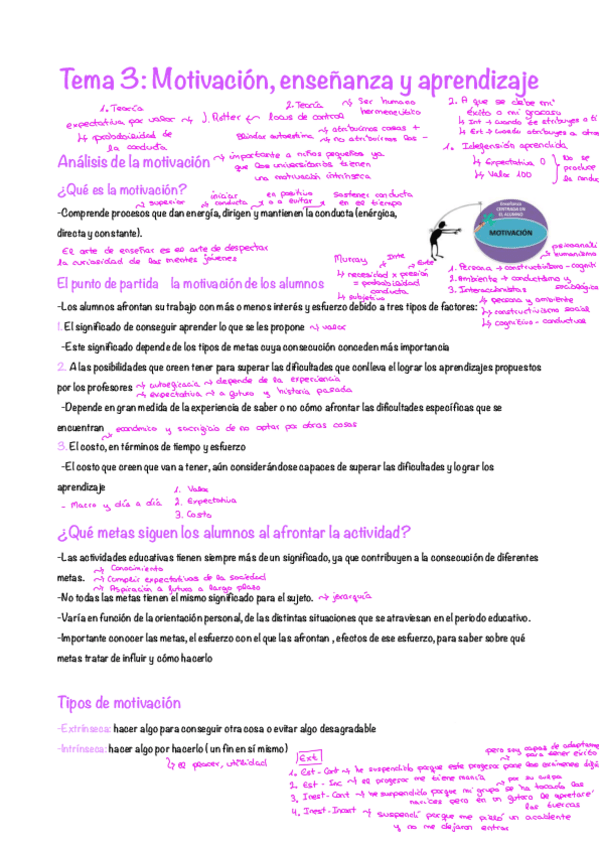 Tema 3: Motivación, enseñanza y aprendizaje
1. Teoría
expectativa por valor → J. Rotter ← locus de control
↳ probabilidad de
la conducta
2. Teoría → Ser humano
hermenéutico
Blindar autoestima → atribuirnos cosas +
→ no atribuirnos las -
2. A que se debe mi
éxito o mi fracaso
↳ Int → cuando te atribuyes a ti
↳ Ext → cuando atribuyes a otros
1. Idefensión aprendida
↳ Expectativa 0
↳ Valor 100
No se
produce
Análisis de la motivación → importante a niños pequeños ya
que los universitarios tienen
una motivación intrínseca
¿Qué es la motivación?
↳ superior
iniciar
conducta
en positivo
o a evitar
sostener conducta
en es tiempo
-Comprende procesos que dan energía, dirigen y mantienen la conducta (enérgica,
directa y constante).
El arte de enseñar es es arte de despertar
la curiosidad de las mentes jóvenes
ENSEÑANZA
CENTRADA EN
EL ALUMNO
MOTIVACIÓN
Murray
↳ necesidad x presión
= probabilidad
conducta
↳ subjetivo
1. Persona → constructivismo - cogniti
humanismo
2. Ambiente → conductismo y
3. Interaccionistas
↳ persona y ambiente
↳ constructivismo social
↳ cognitivo - conductual
El punto de partida la motivación de los alumnos
-Los alumnos afrontan su trabajo con más o menos interés y esfuerzo debido a tres tipos de factores:
1. El significado de conseguir aprender lo que se les propone → valor
-Este significado depende de los tipos de metas cuya consecución conceden más importancia
2. A las posibilidades que creen tener para superar las dificultades que conlleva el lograr los aprendizajes propuestos
por los profesores → autoeficacia → depende de la experiencia
→ expectativa → a futuro y historia pasada
-Depende en gran medida de la experiencia de saber o no cómo afrontar las dificultades específicas que se
encuentran → económico y sacrificio de no optar por otras cosas
3. El costo, en términos de tiempo y esfuerzo
-El costo que creen que van a tener, aún considerándose capaces de superar las dificultades y lograr los
aprendizaje
- Macro y día a día
1. Valor
2. Expectativa
3. Costo
¿Qué metas siguen los alumnos al afrontar la actividad?
-Las actividades educativas tienen siempre más de un significado, ya que contribuyen a la consecución de diferentes
metas. → Conocimiento
→ Cumplir expectativas de la sociedad
→ Aspiración a futuro a largo plazo
-No todas las metas tienen el mismo significado para el sujeto. → jerarquía
-Varía en función de la orientación personal, de las distintas situaciones que se atraviesan en el periodo educativo.
-Importante conocer las metas, el esfuerzo con el que las afrontan , efectos de ese esfuerzo, para saber sobre qué
metas tratar de influir y cómo hacerlo
Tipos de motivación
-Extrínseca: hacer algo para conseguir otra cosa o evitar algo desagradable
-Intrínseca: hacer algo por hacerlo ( un fin en sí mismo)
↳ es placer, utilidad
Ext
pero soy capas de adaptarme
para tener éxito
1. Est - Cont → he suspendido porque este profesor pone los exámenes
2. Est - Inc → es profesor me tiene manía
por su culpa
3. Inest - Cont → he suspendido porque mi grupo se ha tocado las
narices pero en un futuro le apretaré
las tuercas
4. Inest - Incont → suspendí porque me pilló un accidente
y no me dejaron entrar